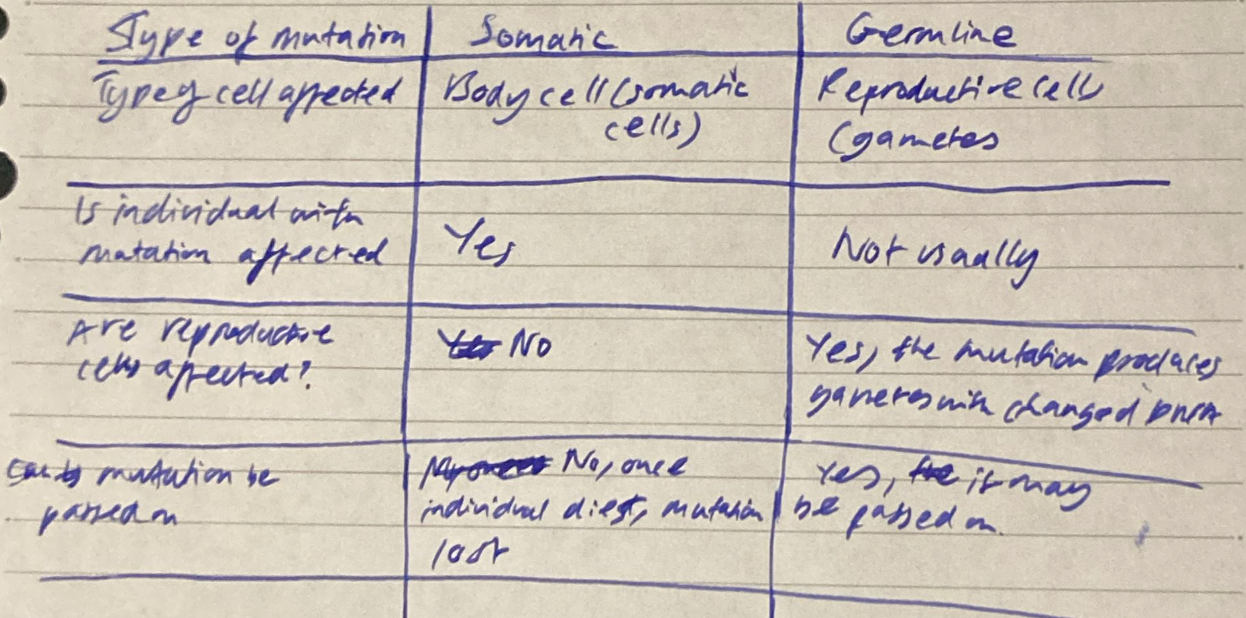 Type of mutation
Somatic
Germline
Type of cell affected
Body cell (somatic
cells)
Reproductive cell
(gametes
Is individual with
mutation affected
Yes
Not usually
Are reproductive
cells affected?
No
Yes, the mutation produces
gametes with changed DNA
mutation be
passed on
No, once
individual dies, mutation
lost
Yes, it may
be passed on.